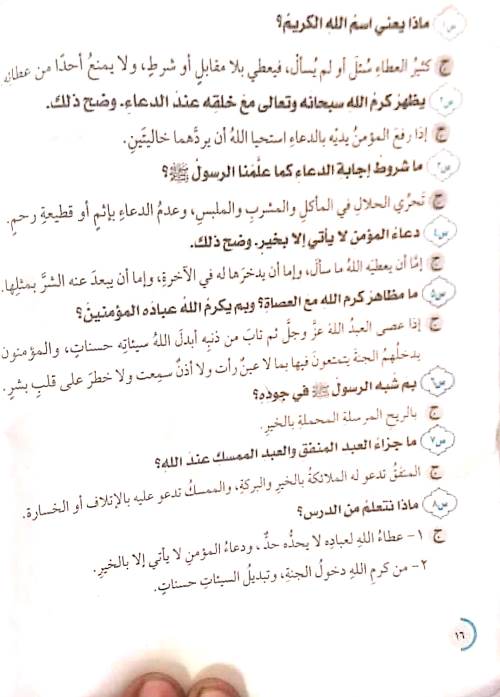 س١ ماذا يعني اسمُ اللهِ الكريمُ؟
ج كثيرُ العطاءِ سُئلَ أو لم يُسألْ، فيعطي بلا مقابلٍ أو شرطٍ، ولا يمنعُ أحدًا من عطائِه
س٢ يظهرُ كرمُ الله سبحانه وتعالى معَ خلقِه عندَ الدعاءِ. وضح ذلكَ.
ج إذا رفعَ المؤمنُ يديْه بالدعاءِ استحيا اللهُ أن يردَّهما خاليتَينِ.
س٣ ما شروطُ إجابة الدعاءِ كما علَّمَنا الرسولُ ﷺ؟
ج تَحرِّي الحلالِ في المأكلِ والمشربِ والملبسِ، وعدمُ الدعاءِ بإثمٍ أو قطيعةِ رحمٍ.
س٤ دعاءُ المؤمنِ لا يأتي إلا بخيرٍ. وضح ذلكَ.
ج إمَّا أن يعطيَه اللهُ ما سألَ، وإما أن يدخرَها له في الآخرةِ، وإما أن يبعدَ عنه الشرَّ بمثلِها.
س٥ ما مظاهرُ كرمِ اللهِ معَ العصاةِ؟ وبمَ يكرمُ اللهُ عبادَه المؤمنينَ؟
ج إذا عصى العبدُ اللهَ عزَّ وجلَّ ثم تابَ من ذنبِه أبدلَ اللهُ سيئاتِه حسناتٍ، والمؤمنون
يدخلُهمُ الجنةَ يتمتعونَ فيها بما لا عينٌ رأت ولا أذنٌ سمِعت ولا خطرَ على قلبِ بشرٍ.
س٦ بمَ شُبه الرسولُ ﷺ في جودِه؟
ج بالريحِ المرسلةِ المحملةِ بالخيرِ.
س٧ ما جزاءُ العبدِ المنفقِ والعبدِ الممسكِ عندَ اللهِ؟
ج المنفقُ تدعو له الملائكةُ بالخيرِ والبركةِ، والممسكُ تدعو عليه بالإتلافِ أو الخسارة.
س٨ ماذا نتعلمُ من الدرسِ؟
ج ١- عطاءُ اللهِ لعبادِه لا يحدُّه حدٌّ، ودعاءُ المؤمنِ لا يأتي إلا بالخيرِ.
٢- من كرمِ اللهِ دخولُ الجنةِ، وتبديلُ السيئاتِ حسناتٍ.
١٦